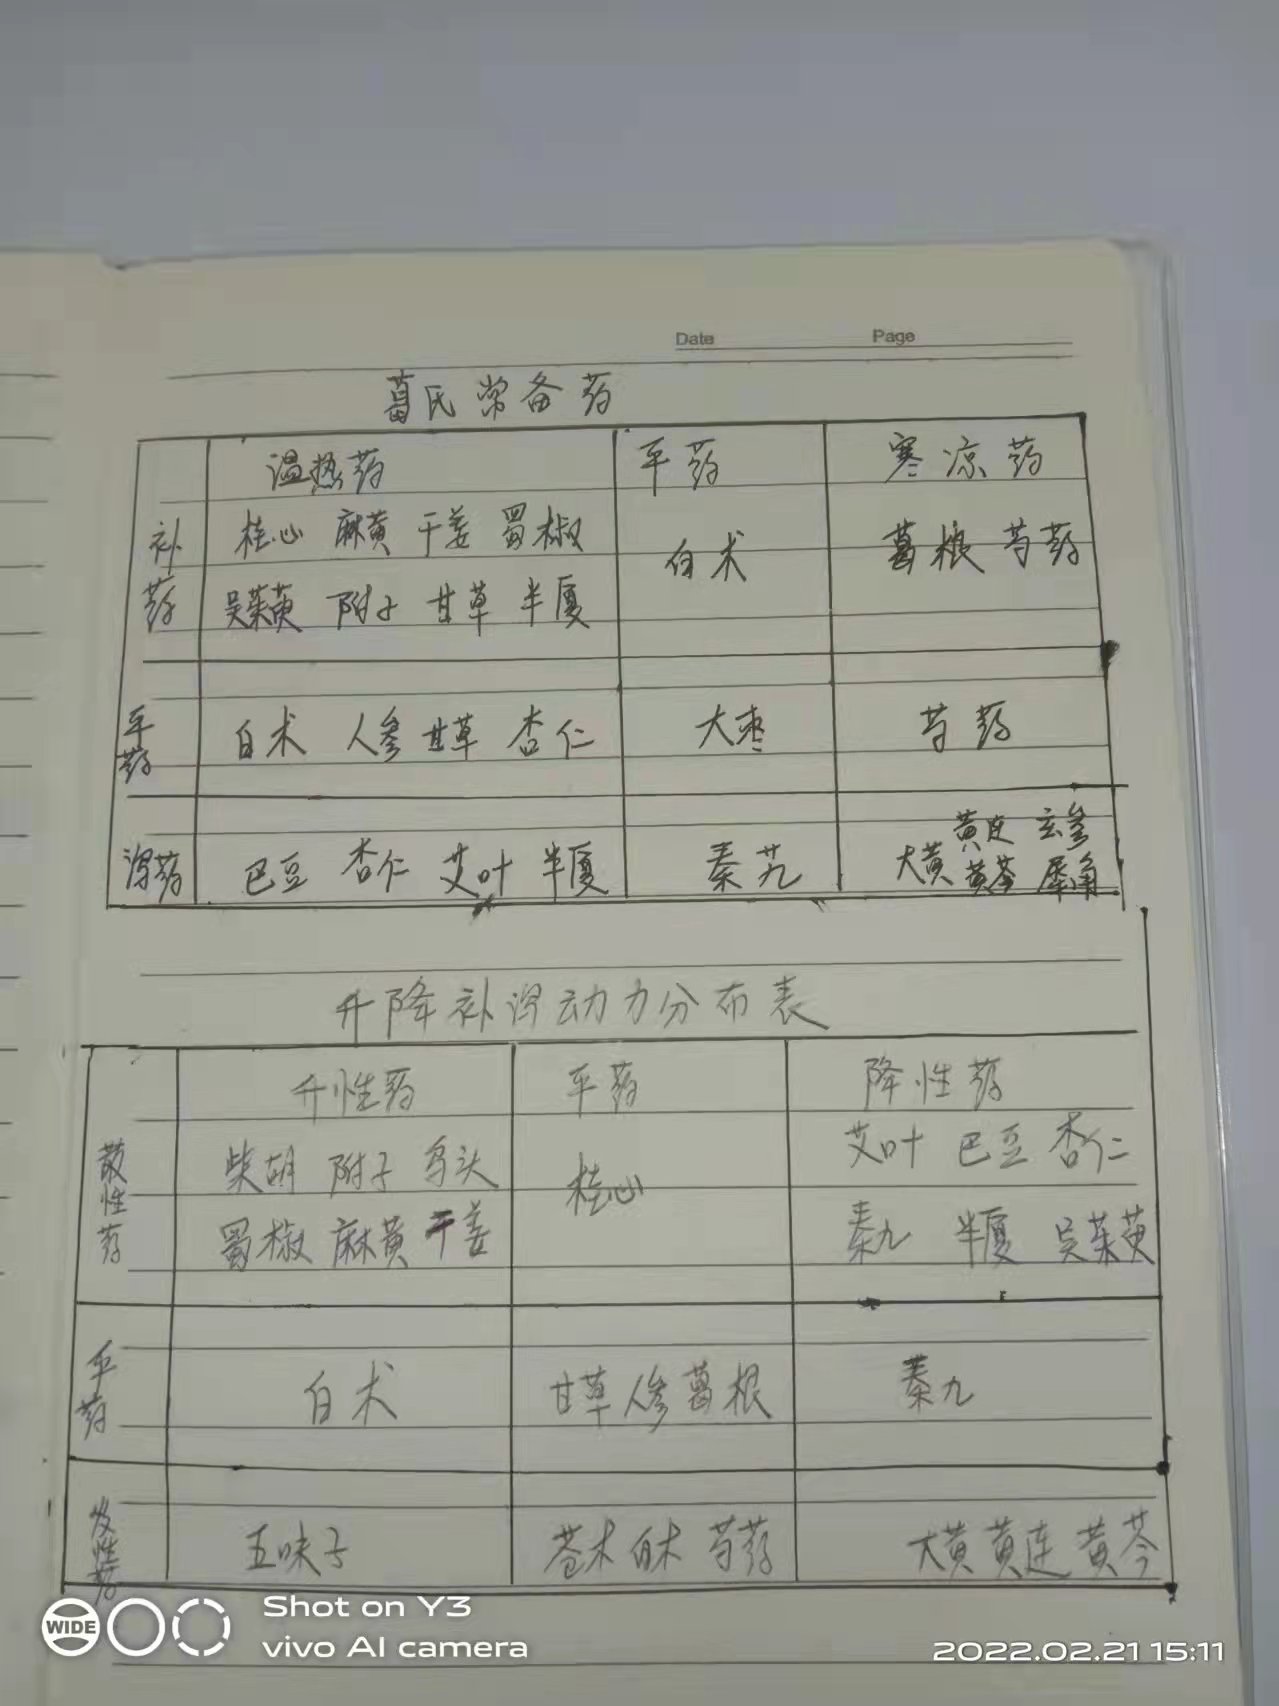 Date Page
葛氏常备药
温热药 平药 寒凉药
补药 桂心 麻黄 干姜 蜀椒 白术 葛根 芍药
吴茱萸 附子 甘草 半厦
平药 白术 人参 甘草 杏仁 大枣 芍药
泻药 巴豆 杏仁 艾叶 半厦 秦艽 黄连 玄参
大黄 黄芩 犀角
升降补泻动力分布表
升性药 平药 降性药
散性药 柴胡 附子 乌头 桂心 艾叶 巴豆 杏仁
蜀椒 麻黄 干姜 秦九 半厦 吴茱萸
平药 白术 甘草 人参 葛根 秦九
性药 五味子 苍术 白术 芍药 大黄 黄连 黄芩
WIDE
Shot on Y3
vivo AI camera
2022.02.21 15:11